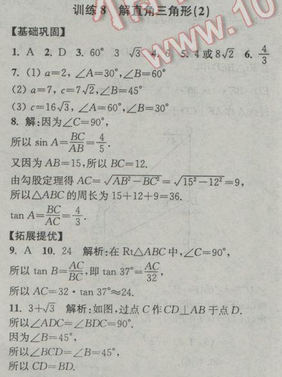 训练8 解直角三角形(2)
【基础巩固】
1. A 2. D 3. 60° 3 √3 5. 4或8√2 6. 4/3
7. (1) a=2, ∠A=30°, ∠B=60°
(2) a=7, c=7√2, ∠B=45°
(3) c=16√3, ∠A=60°, ∠B=30°
8. 解:因为∠C=90°,
所以 sin A=BC/AB=4/5.
又因为 AB=15,所以 BC=12.
由勾股定理得 AC=√(AB²−BC²)=√(15²−12²)=9,
所以△ABC 的周长为 15+12+9=36.
tan A=BC/AC=4/3.
【拓展提优】
9. A 10. 24 解析:在 Rt△ABC 中,∠C=90°,
所以 tan B=AC/BC,即 tan 37°=AC/32,
所以 AC=32·tan 37°≈24.
11. 3+√3 解析:如图,过点 C 作 CD⊥AB 于点 D.
所以∠ADC=∠BDC=90°.
因为∠B=45°,
所以∠BCD=∠B=45°,
所以 CD=BD.